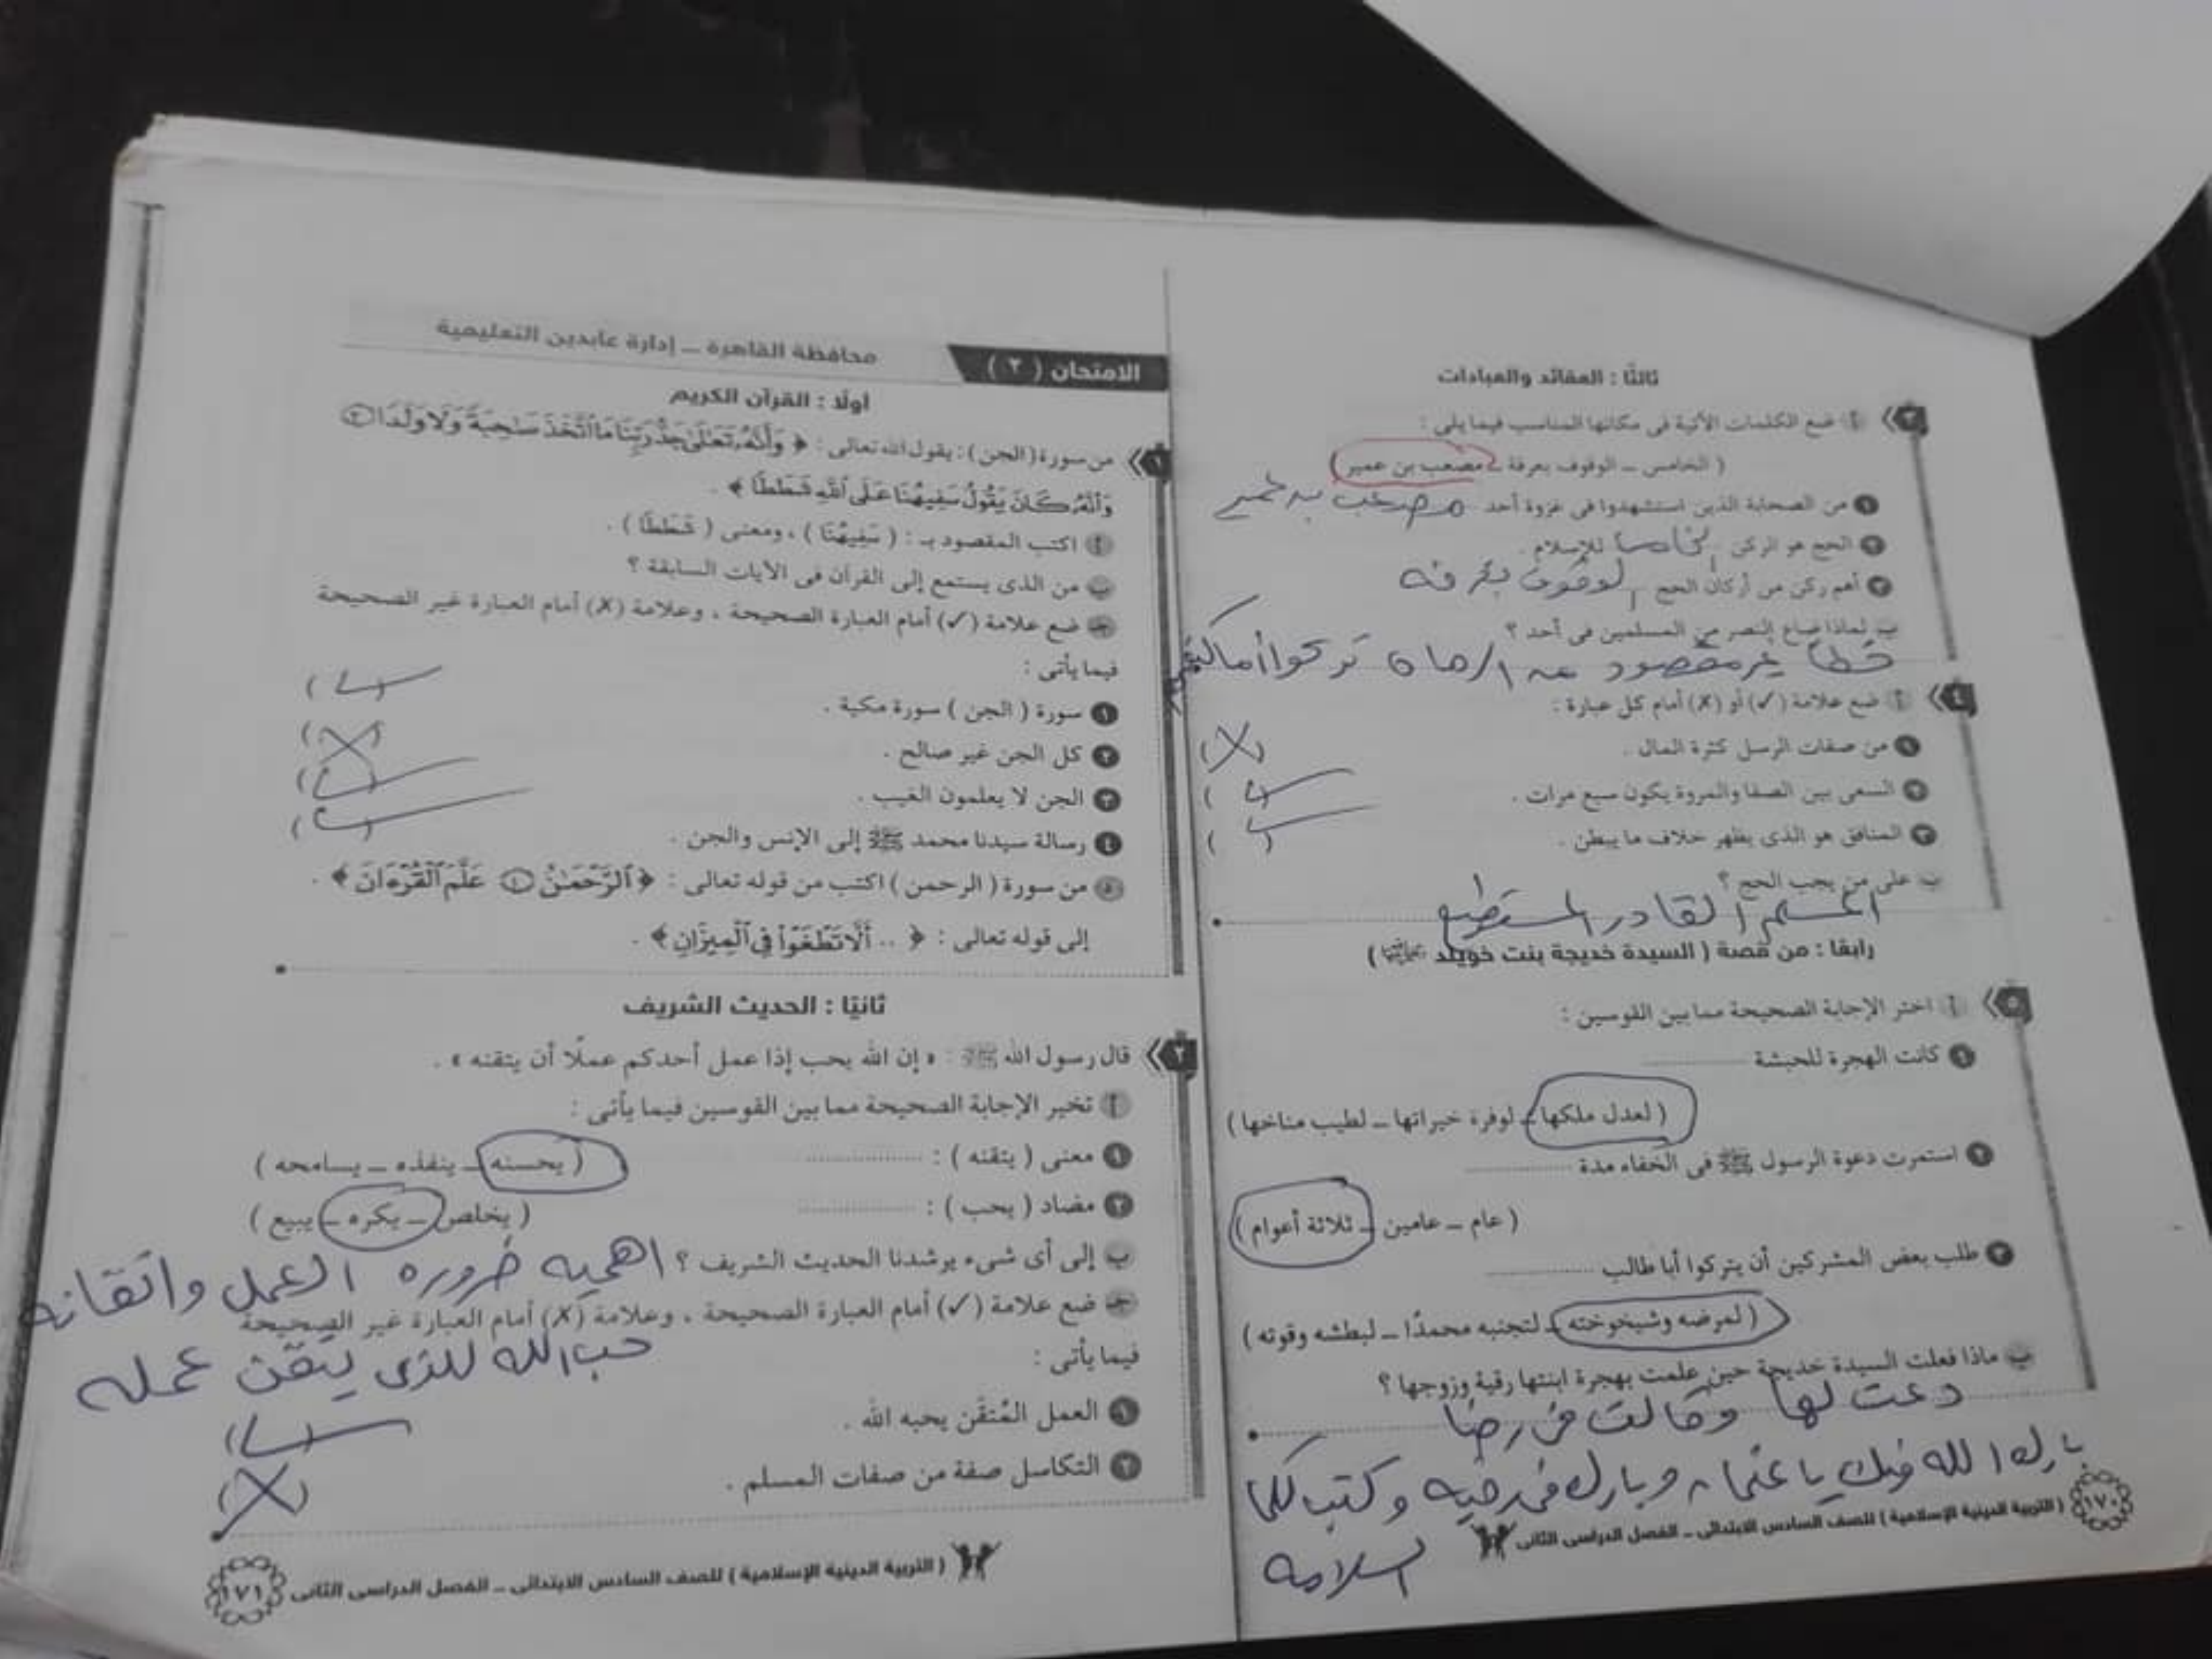 ثالثًا : العقائد والعبادات
٣ أ ضع الكلمات الآتية فى مكانها المناسب فيما يلى :
( الخامس – الوقوف بعرفة – مصعب بن عمير )
١ من الصحابة الذين استشهدوا فى غزوة أحد مصعب بن عمير
٢ الحج هو الركن الخامس للإسلام .
٣ أهم ركن من أركان الحج الوقوف بعرفه
ب لماذا ضاع النصر من المسلمين فى أحد ؟
خطأ غير مقصود من الرماة تركوا أماكنهم
٤ أ ضع علامة (✓) أو (✗) أمام كل عبارة :
١ من صفات الرسل كثرة المال . (✗)
٢ السعى بين الصفا والمروة يكون سبع مرات . (✓)
٣ المنافق هو الذى يظهر خلاف ما يبطن . (✓)
ب على من يجب الحج ؟
المسلم القادر المستطيع
رابعًا : من قصة ( السيدة خديجة بنت خويلد رضي الله عنها )
٥ أ اختر الإجابة الصحيحة مما بين القوسين :
١ كانت الهجرة للحبشة ............
( لعدل ملكها – لوفرة خيراتها – لطيب مناخها )
٢ استمرت دعوة الرسول ﷺ فى الخفاء مدة ............
( عام – عامين – ثلاثة أعوام )
٣ طلب بعض المشركين أن يتركوا أبا طالب ............
( لمرضه وشيخوخته – لتجنبه محمدًا – لبطشه وقوته )
ب ماذا فعلت السيدة خديجة حين علمت بهجرة ابنتها رقية وزوجها ؟
دعت لها وقالت فى رضا
بارك الله فيك يا عثمان وبارك فى رقيه وكتب لكما
السلامه
١٧٠ ( التربية الدينية الإسلامية ) للصف السادس الابتدائى – الفصل الدراسى الثانى
الامتحان ( ٢ ) محافظة القاهرة – إدارة عابدين التعليمية
أولًا : القرآن الكريم
١ من سورة ( الجن ) : يقول الله تعالى : ﴿ وَأَنَّهُۥ تَعَٰلَىٰ جَدُّ رَبِّنَا مَا ٱتَّخَذَ صَٰحِبَةً وَلَا وَلَدًا ٣
وَأَنَّهُۥ كَانَ يَقُولُ سَفِيهُنَا عَلَى ٱللَّهِ شَطَطًا ﴾ .
أ اكتب المقصود بـ : ( سَفِيهُنَا ) ، ومعنى ( شَطَطًا ) .
ب من الذى يستمع إلى القرآن فى الآيات السابقة ؟
جـ ضع علامة (✓) أمام العبارة الصحيحة ، وعلامة (✗) أمام العبارة غير الصحيحة
فيما يأتى :
١ سورة ( الجن ) سورة مكية . (✓)
٢ كل الجن غير صالح . (✗)
٣ الجن لا يعلمون الغيب . (✓)
٤ رسالة سيدنا محمد ﷺ إلى الإنس والجن . (✓)
د من سورة ( الرحمن ) اكتب من قوله تعالى : ﴿ ٱلرَّحْمَٰنُ ١ عَلَّمَ ٱلْقُرْءَانَ ﴾ .
إلى قوله تعالى : ﴿ .. أَلَّا تَطْغَوْا۟ فِى ٱلْمِيزَانِ ﴾ .
ثانيًا : الحديث الشريف
٢ قال رسول الله ﷺ : « إن الله يحب إذا عمل أحدكم عملًا أن يتقنه » .
أ تخير الإجابة الصحيحة مما بين القوسين فيما يأتى :
١ معنى ( يتقنه ) : ............ ( يحسنه – ينفذه – يسامحه )
٢ مضاد ( يحب ) : ............ ( يخلص – يكره – يبيع )
ب إلى أى شىء يرشدنا الحديث الشريف ؟ اهميه ضروره العمل واتقانه
جـ ضع علامة (✓) أمام العبارة الصحيحة ، وعلامة (✗) أمام العبارة غير الصحيحة
حب الله للذى يتقن عمله
فيما يأتى :
١ العمل المُتقَن يحبه الله . (✓)
٢ التكاسل صفة من صفات المسلم . (✗)
( التربية الدينية الإسلامية ) للصف السادس الابتدائى – الفصل الدراسى الثانى ١٧١